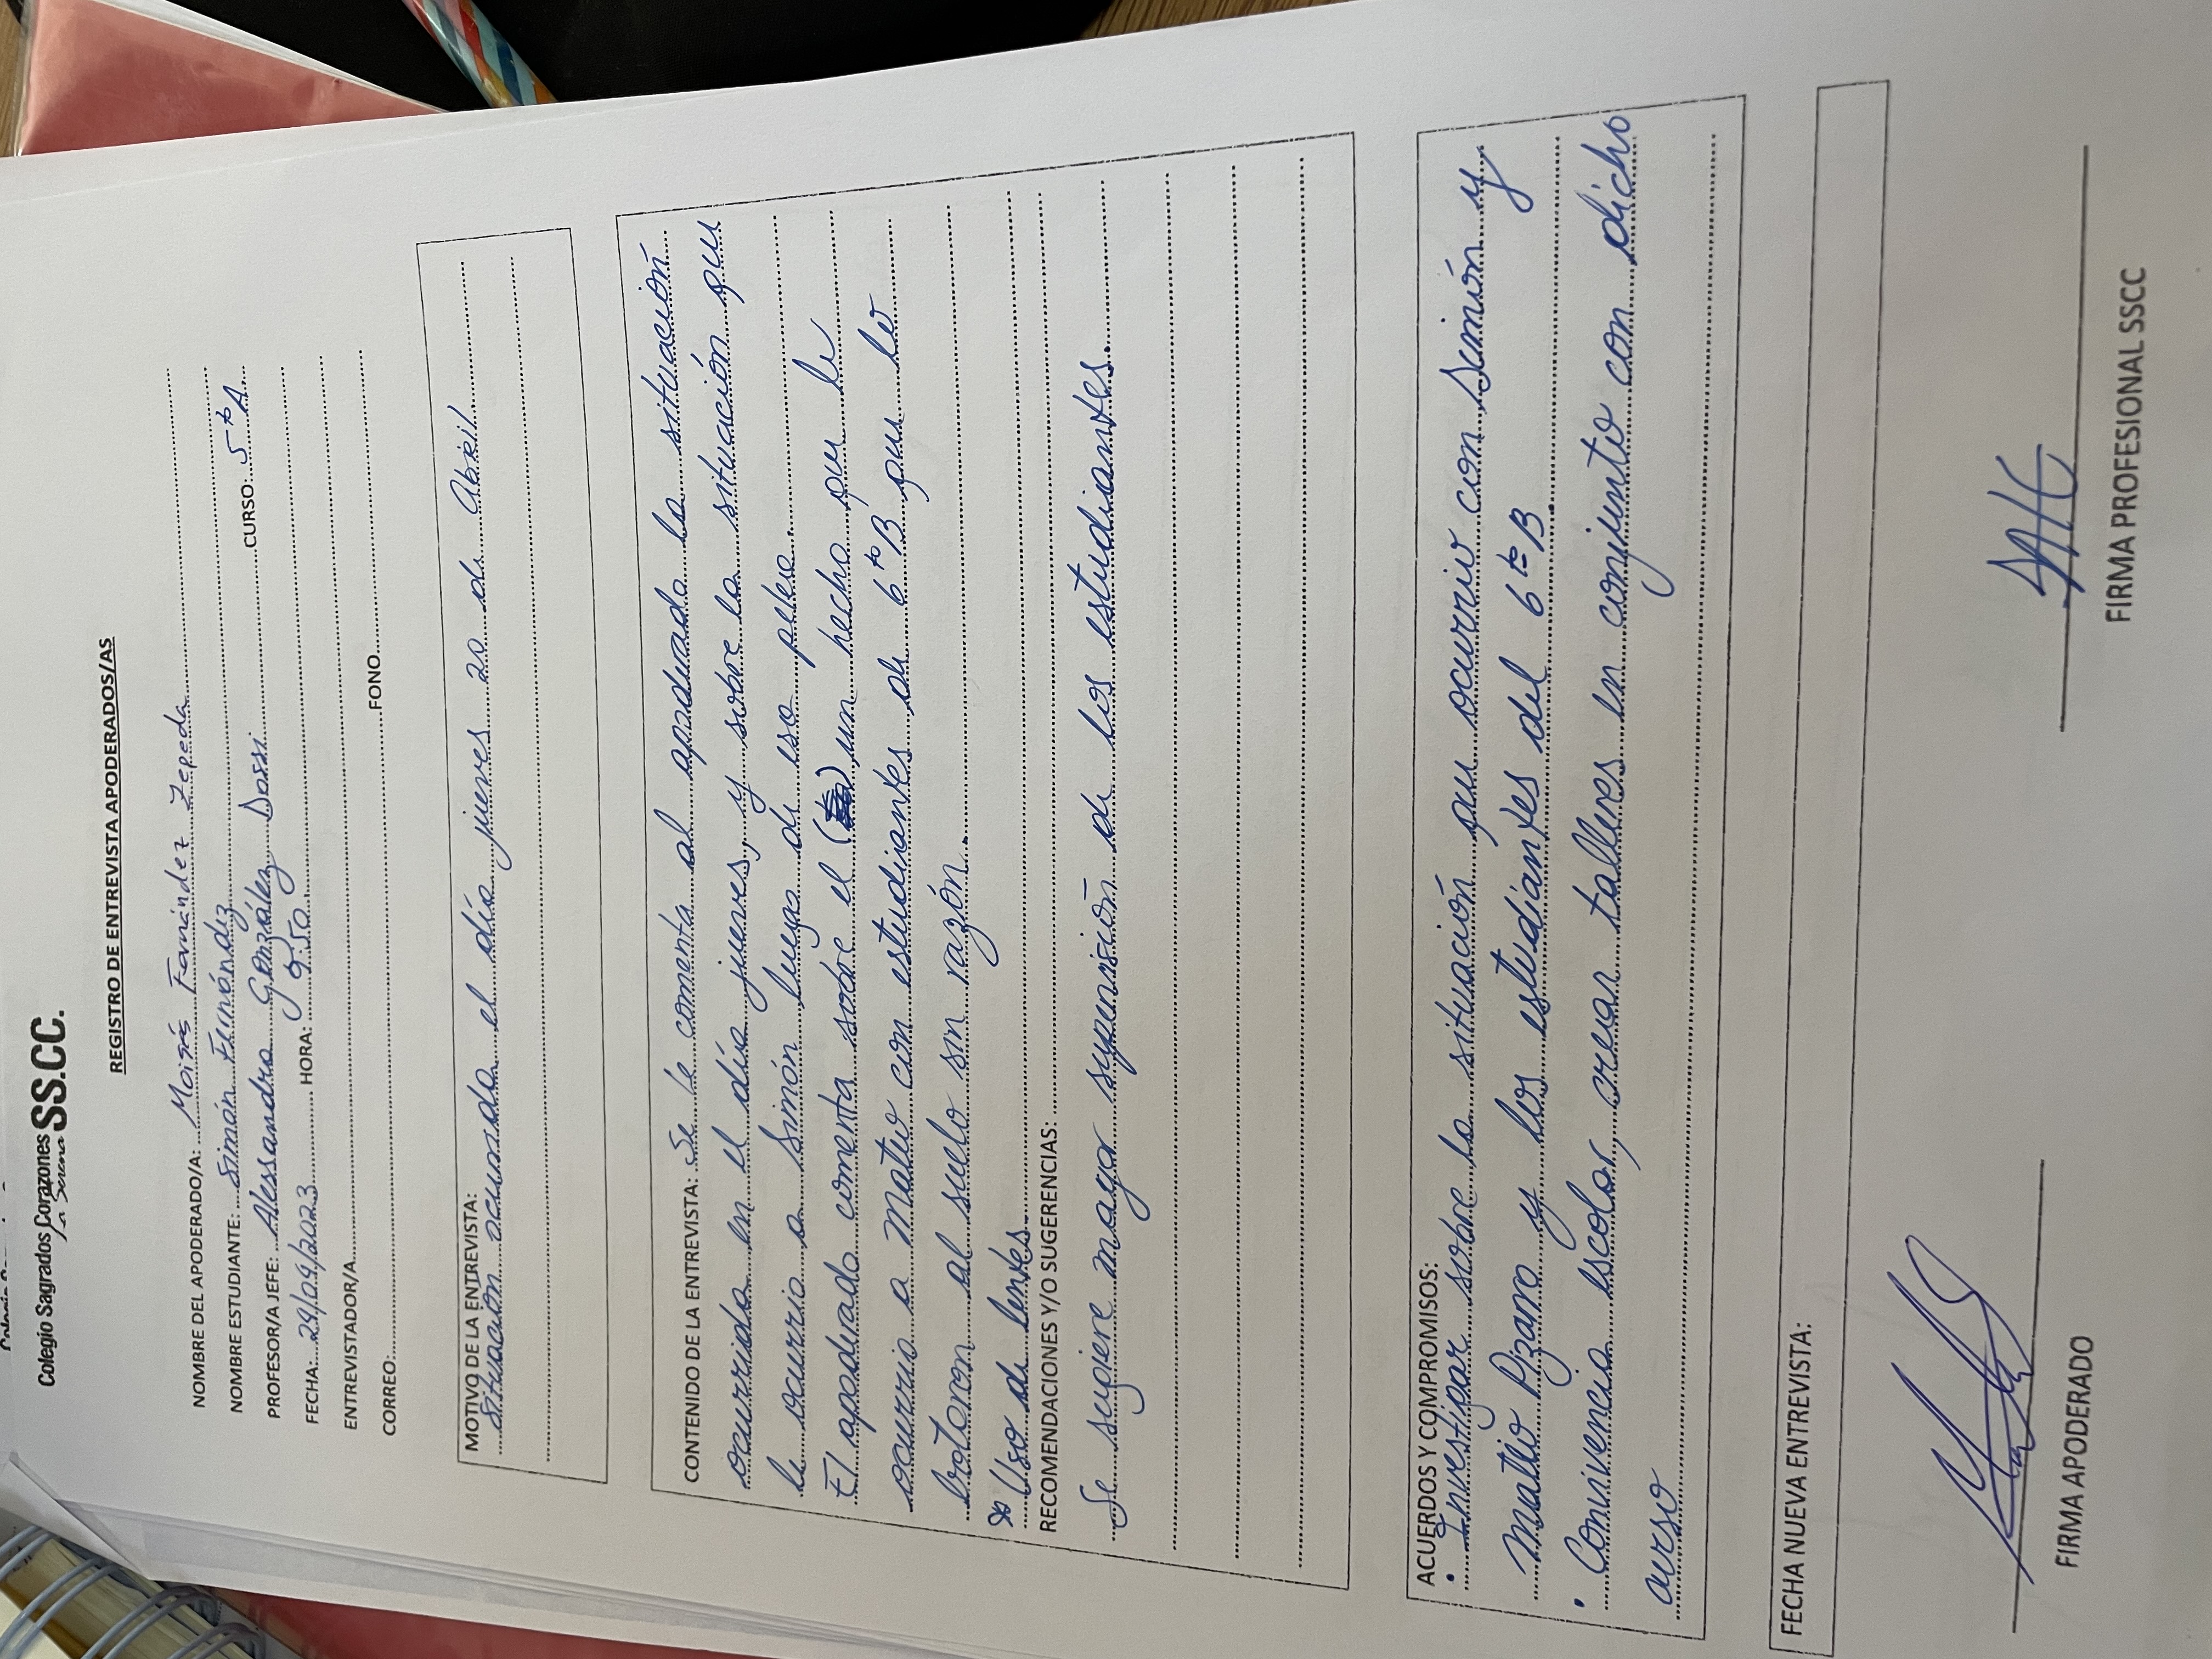 Colegio Sagrados Corazones SS.CC.
La Serena
REGISTRO DE ENTREVISTA APODERADOS/AS
NOMBRE DEL APODERADO/A: Moisés Fernández Zepeda
NOMBRE ESTUDIANTE: Simón Fernández
PROFESOR/A JEFE: Alessandra González Dossi CURSO: 5to A
FECHA: 29/09/2023 HORA: 9:50
ENTREVISTADOR/A
CORREO: FONO
MOTIVO DE LA ENTREVISTA:
Situación ocurrida el día jueves 20 de Abril
CONTENIDO DE LA ENTREVISTA: Se le comenta al apoderado la situación
ocurrida en el día jueves, y sobre la situación que
le ocurrio a Simón luego de eso pelea.
El apoderado comenta sobre el un hecho que le
ocurrio a Mateo con estudiantes de 6to B que lo
botaron al suelo sin razón.
* Uso de lentes.
RECOMENDACIONES Y/O SUGERENCIAS:
Se sugiere mayor supervisión de los estudiantes.
ACUERDOS Y COMPROMISOS:
• Investigar sobre la situación que ocurrio con Simón y
Mateo Pizarro y los estudiantes del 6to B
• Convivencia escolar, crear talleres en conjunto con dicho
curso
FECHA NUEVA ENTREVISTA:
FIRMA APODERADO
FIRMA PROFESIONAL SSCC